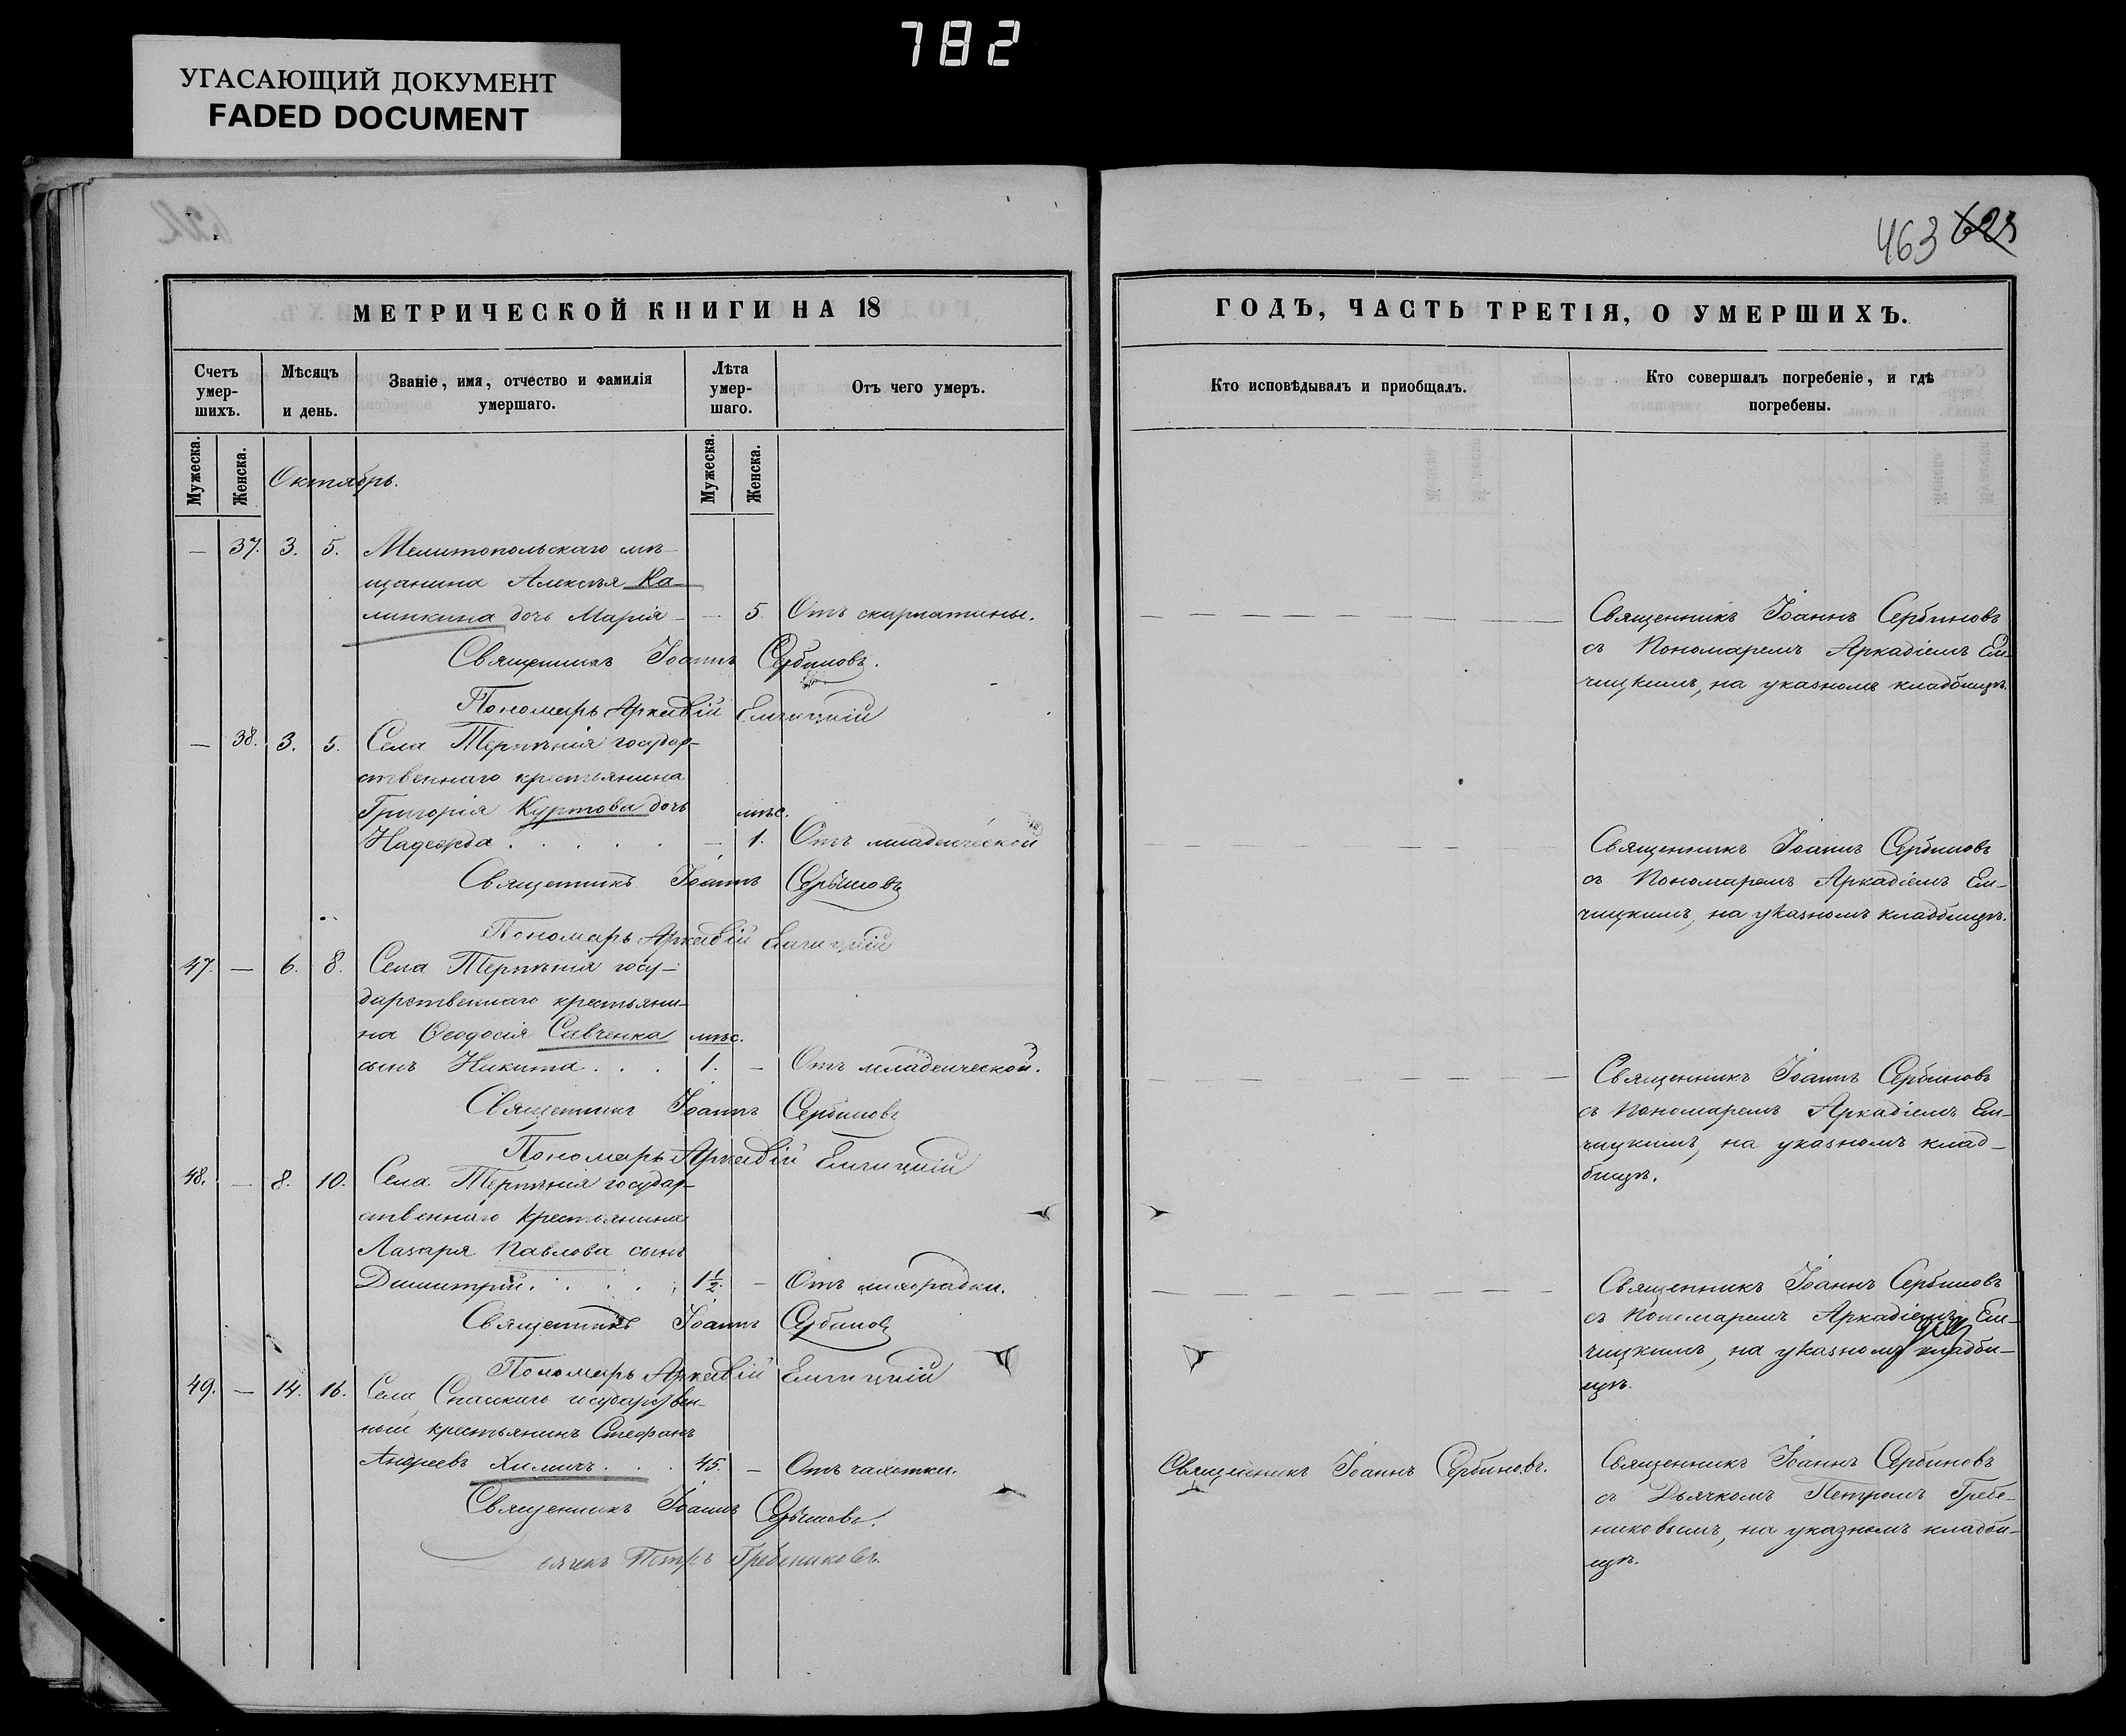 782
УГАСАЮЩИЙ ДОКУМЕНТ
FADED DOCUMENT
МЕТРИЧЕСКОЙ КНИГИ НА 18
Счетъ умер-шихъ.
Мѣсяцъ и день.
Званіе, имя, отчество и фамилія умершаго.
Лѣта умер-шаго.
Отъ чего умеръ.
Мужеска.
Женска.
Мужеска.
Женска.
Октябрь.
— 37. 3. 5. Мелитопольскаго мѣ-
щанина Алексѣя Ка-
линкина дочь Марія — — 5. Отъ скарлатины.
Священникъ Іоаннъ Сербиновъ.
Пономарь Аркадій Елчицкій
— 38. 3. 5. Села Терпѣнія государ-
ственнаго крестьянина
Григорія Куртова дочь мѣс.
Надежда . . . . . — 1. Отъ младенческой
Священникъ Іоаннъ Сербиновъ
Пономарь Аркадій Елчицкій
47. — 6. 8. Села Терпѣнія госу-
дарственнаго крестьяни-
на Ѳеодосія Савченка мѣс.
сынъ Никита . . . 1. — Отъ младенческой.
Священникъ Іоаннъ Сербиновъ
Пономарь Аркадій Елчицкій
48. — 8. 10. Села Терпѣнія государ-
ственнаго крестьянина
Лазаря Павлова сынъ
Димитрій . . . . 1½. — Отъ лихорадки.
Священникъ Іоаннъ Сербиновъ
Пономарь Аркадій Елчицкій
49. — 14. 16. Села Спаскаго государствен-
ный крестьянинъ Стефанъ
Андреевъ Химичъ . . . 45. — Отъ чахотки.
Священникъ Іоаннъ Сербиновъ.
Петръ Гребениковъ.
463 623
ГОДЪ, ЧАСТЬ ТРЕТІЯ, О УМЕРШИХЪ.
Кто исповѣдывалъ и приобщалъ.
Кто совершалъ погребеніе, и гдѣ
погребены.
Священникъ Іоаннъ Сербиновъ
съ Пономаремъ Аркадіемъ Ел-
чицкимъ, на указномъ кладбищѣ.
Священникъ Іоаннъ Сербиновъ
съ Пономаремъ Аркадіемъ Ел-
чицкимъ, на указномъ кладбищѣ.
Священникъ Іоаннъ Сербиновъ
съ Пономаремъ Аркадіемъ Ел-
чицкимъ, на указномъ клад-
бищѣ.
Священникъ Іоаннъ Сербиновъ
съ Пономаремъ Аркадіемъ Ел-
чицкимъ, на указномъ кладби-
щѣ.
Священникъ Іоаннъ Сербиновъ.
Священникъ Іоаннъ Сербиновъ
съ Дьячкомъ Петромъ Гребе-
никовымъ, на указномъ кладби-
щѣ.